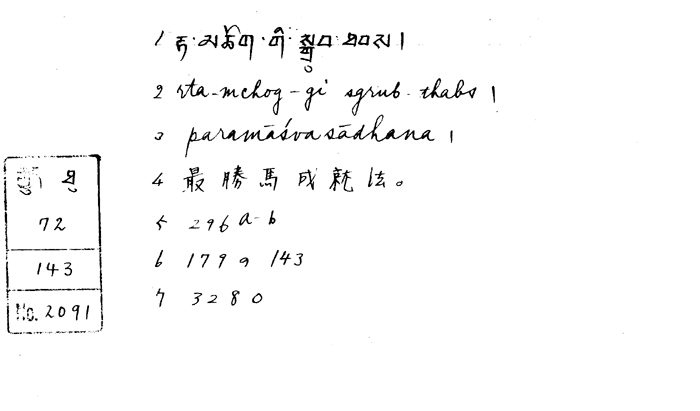 1 རྟ་མཆོག་གི་སྒྲུབ་ཐབས།
2 rta-mchog-gi sgrub-thabs |
3 paramāśva sādhana |
4 最勝馬成就法。
5 296 a-b
6 179の143
7 3280
72
143
No. 2091